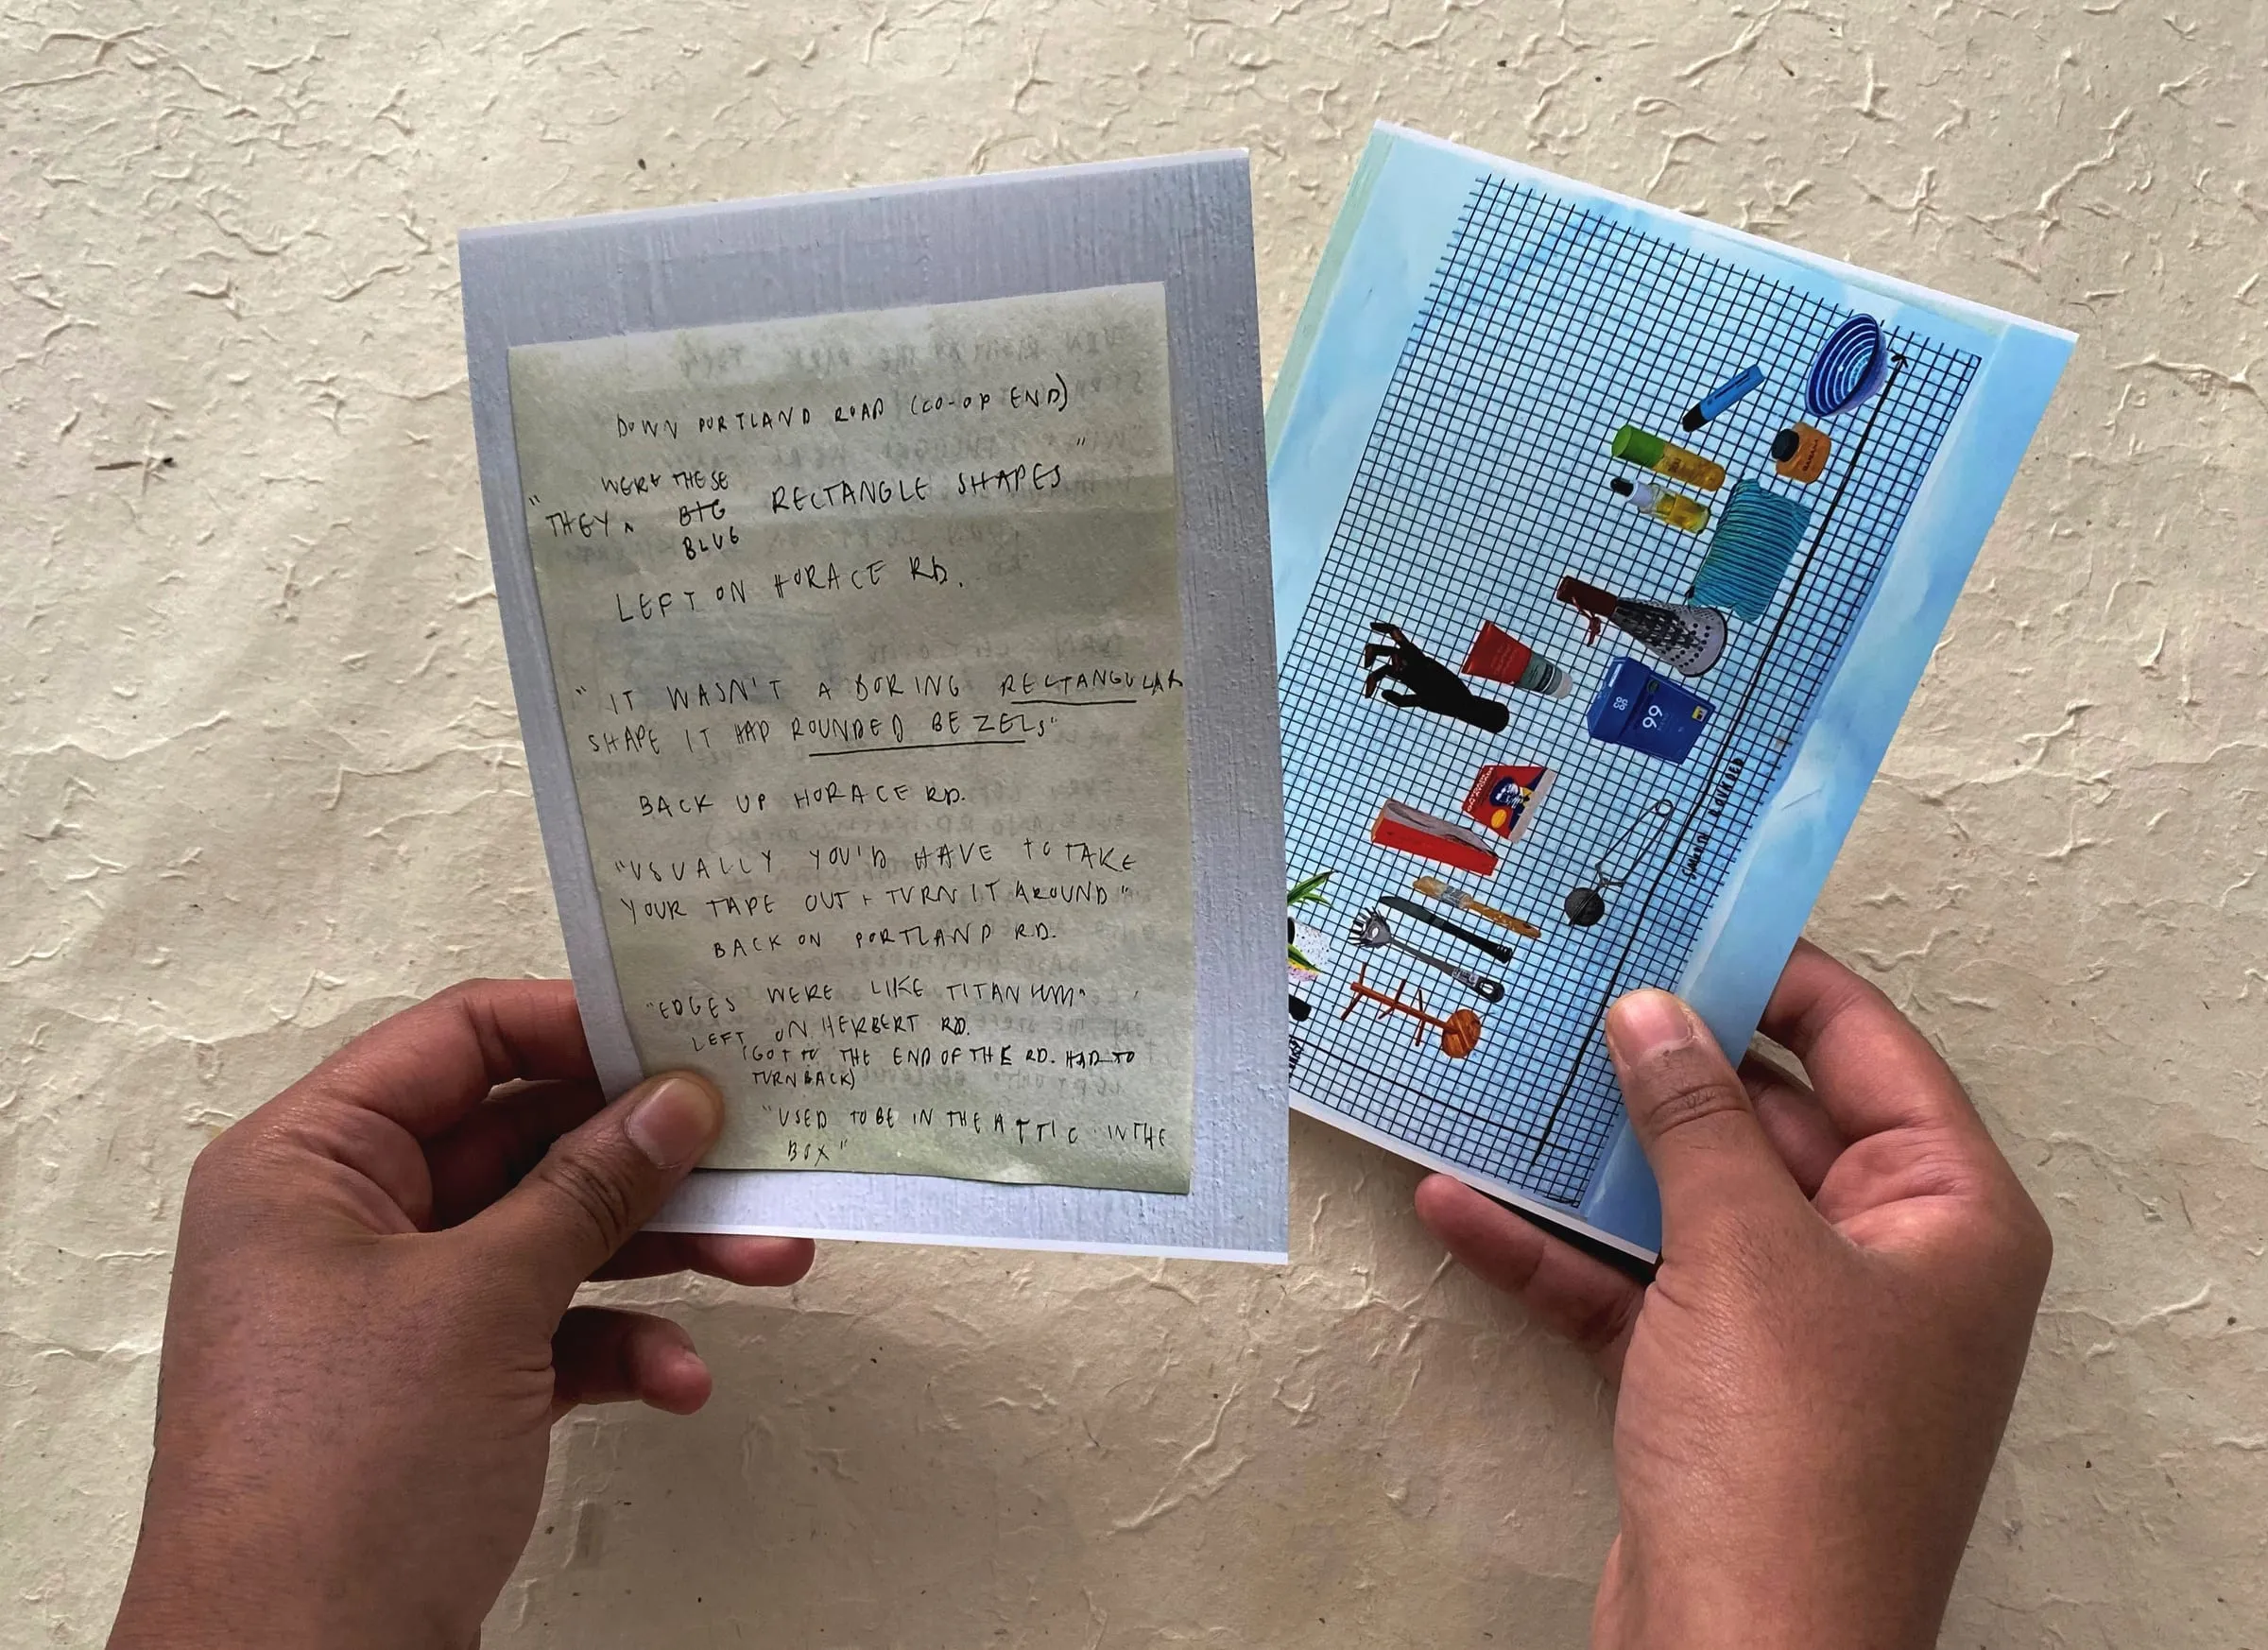 DOWN PORTLAND ROAD (CO-OP END)
WERE THESE
"THEY ^ BIG RECTANGLE SHAPES"
BLUE
LEFT ON HORACE RD.
"IT WASN'T A BORING RECTANGULAR
SHAPE IT HAD ROUNDED BEZELS"
BACK UP HORACE RD.
"USUALLY YOU'D HAVE TO TAKE
YOUR TAPE OUT + TURN IT AROUND"
BACK ON PORTLAND RD.
"EDGES WERE LIKE TITANIUM"
LEFT ON HERBERT RD.
(GOT TO THE END OF THE RD. HAD TO
TURN BACK)
"USED TO BE IN THE ATTIC IN THE
BOX"
99
ROUNDED